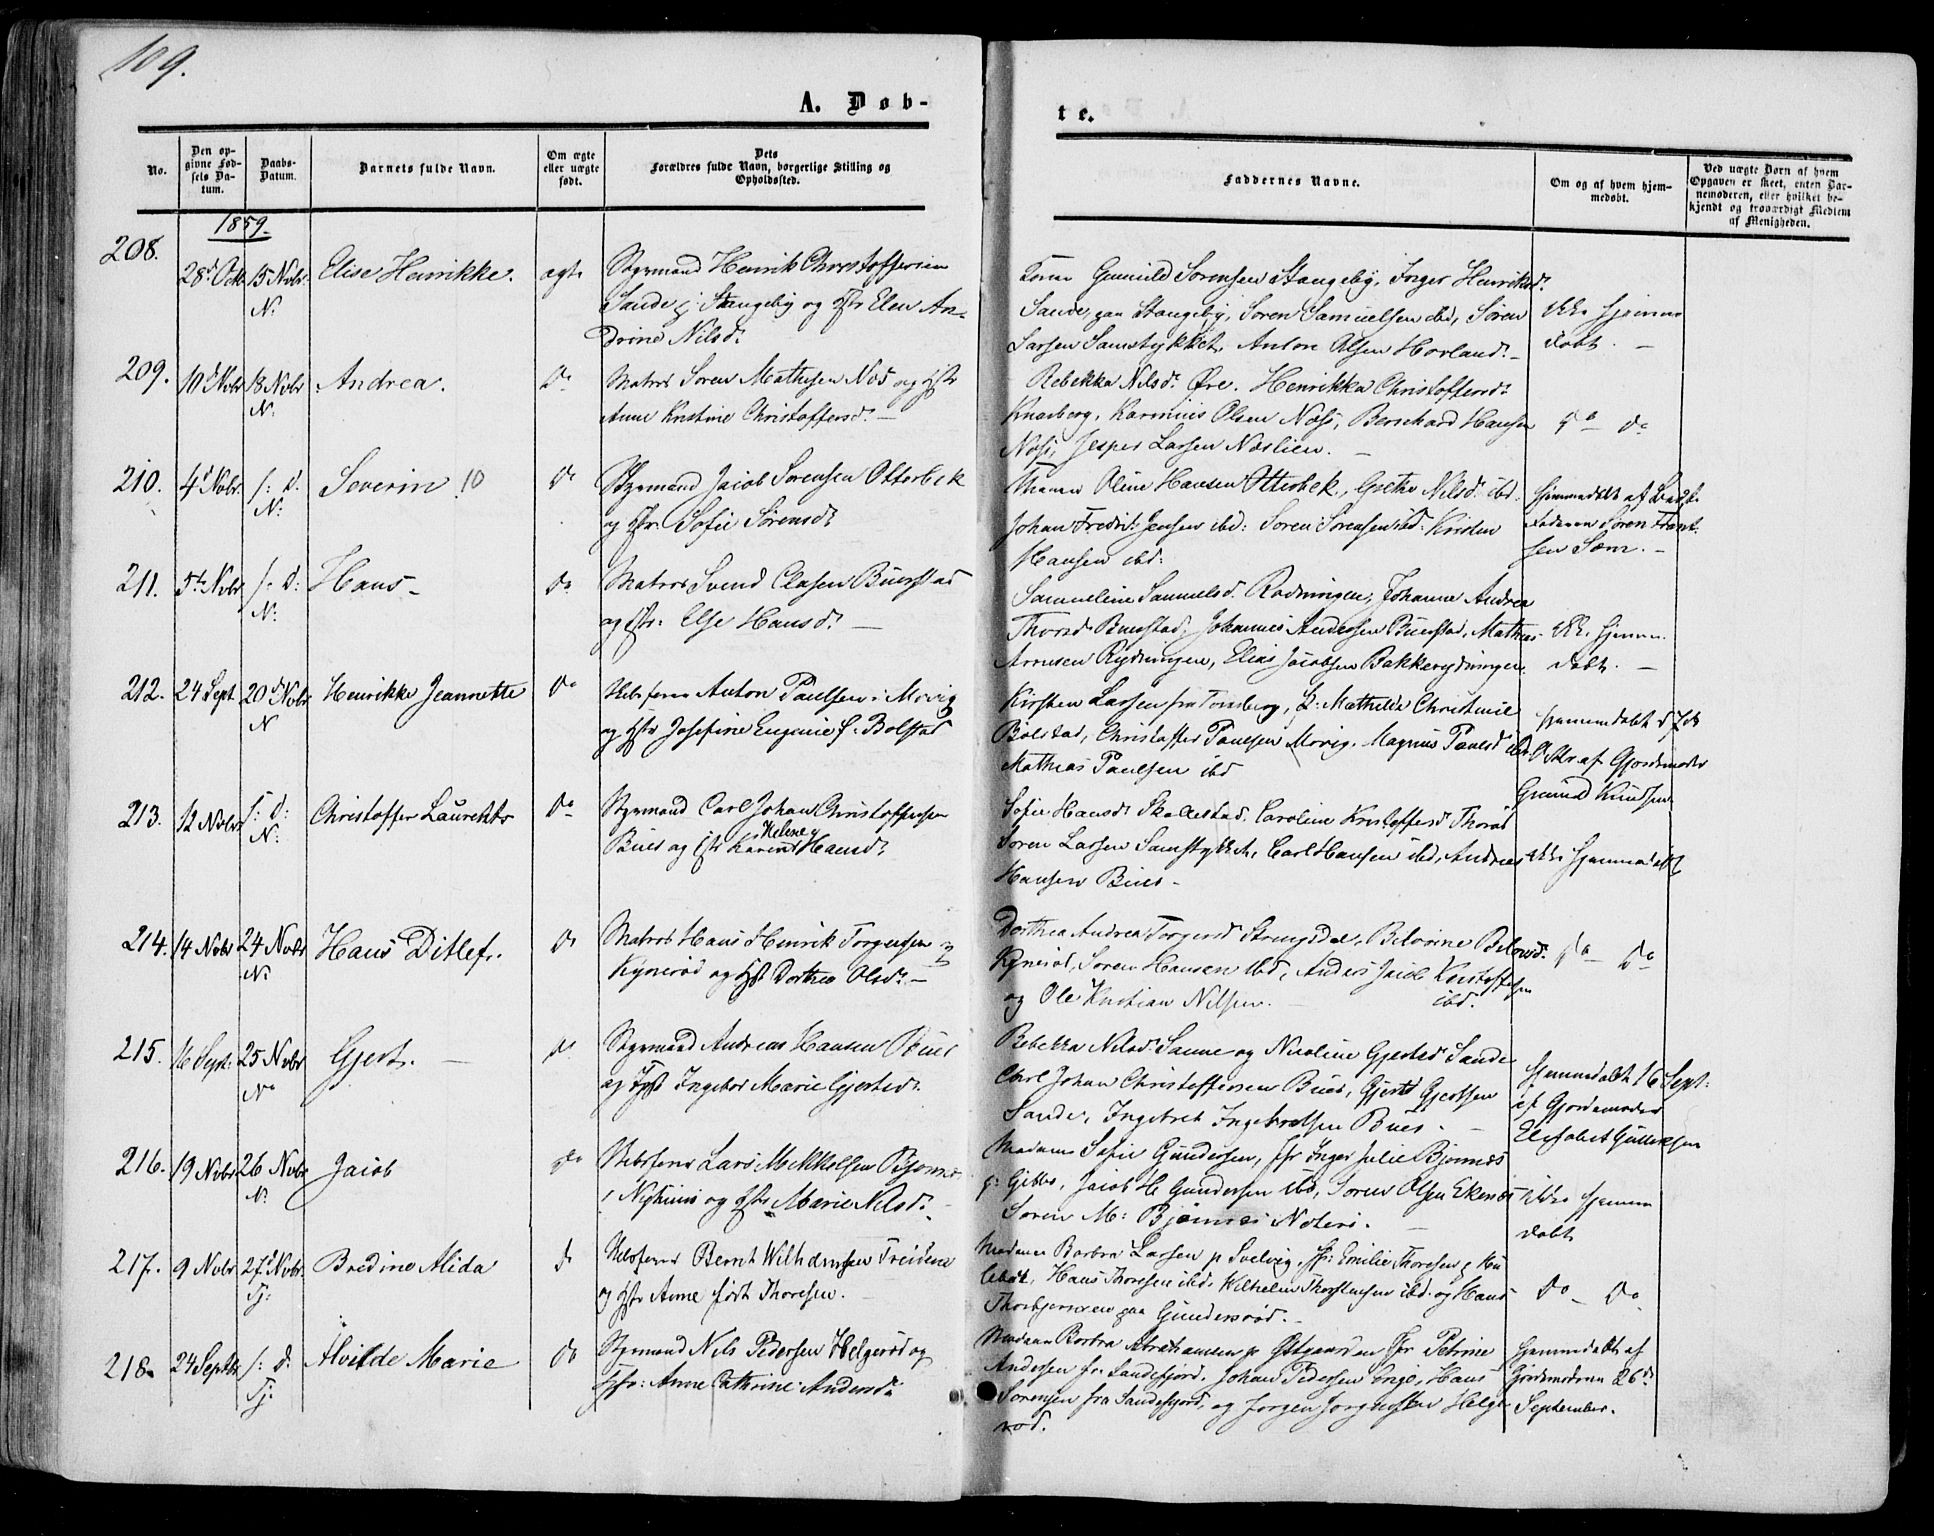 109.
A. Døb-
te.
No.
Den op-
givne Fød-
sels Da-
tum.
Daabs-
Datum.
Barnets fulde Navn.
Om ægte
eller uægte
født.
Dets
Forældres fulde Navn, borgerlige Stilling og
Opholdssted.
Faddernes Navne.
Om og af hvem hjem-
medøbt.
Ved uægte Børn af hvem
Opgaven er skeet, enten Bar-
nemoderen, eller hvilket be-
kjendt og troværdigt Medlem
af Menigheden.
1859.
208.
28d Octb
15 Novbr
N.
Elise Henrikke.
ægte
Styrmand Henrik Christoffersen
Sande p: Stangeby og Hstr Elen An-
drine Nilsd:
Gunnild Sørensen Stangeby, Inger Henriksd:
Sande, paa Stangeby, Søren Samuelsen ibd, Søren
Larsen Samstykket, Anton Olsen Horland. -
ikke hjemme
døbt. -
209.
10d Novbr
18 Novbr
N.
Andrea.
Do
Matros Søren Mathisen Nøs og Hstr
Anne Kristine Christoffersd: -
Rebekka Nilsd: Øre. Henrikka Christoffersd:
Knarberg, Karinius Olsen Næss, Bernhard Hansen
Næss, Jesper Larsen Næslien. -
Do - do
210.
4d Novbr.
s: D.
N:
Severin.
Do
Styrmand Jacob Sørensen Otterbek
og Hstr: Sofie Sørensd:
Oline Hansen Otterbek, Grethe Nilsd: ibd.
Johan Fredrik Jensen ibd: Søren Sørensen ibd: Kristen
Hansen ibd:
Hjemmedøbt af
Faderen Søren
sen Sæm. -
211.
5te Novbr
s: D:
N:
Hans -
Do
Matros Svend Clasen Buerstad
og Hstr: Else Hansd: -
Sammeline Sammelsd. Rødningen, Johanne Andrea
Thorsd: Buerstad, Johannes Andersen Buerstad, Mathias
Arnesen Rydningen, Elias Jacobsen Bakkerydningen
ikke hjemme
døbt. -
212.
24 Sept
20d Novbr
N
Henrikke Jeannette
Do
Anton Paulsen i Movig
og Hstr Josefine Eugenie f. Bolstad
Kirsten Larsen fra Tønsberg, Mathilda Christine
Bolstad, Christoffer Paulsen Movig. Magnus Paulsd ibd.
Mathias Paulsen ibd
hjemmedøbt d 7de
Oktbr. af Gjordemoder
Gunild Knudsen
213.
12 Novbr
s: D:
N:
Christoffer Laurentz
Do
Styrmand Carl Johan Christoffersen
Helene
Bues og Hstr Karen Hansd:
Sofie Hansd: Skallestad. Caroline Kristoffersd Thorød
Søren Larsen Samstykket, Carl Hansen ibd, Andreas
Hansen Bues -
ikke hjemmedøbt
214.
14 Novbr
24 Novbr
N
Hans Ditlef.
Do
Matros Hans Henrik Torgersen
Kynerød og Hst Dorthea Olsd: -
Dorthea Andrea Torgersd
Kynerød, Søren Hansen ibd, Anders Jacob Kristoffersen
ibd.
og Ole Kristian Nilsen. -
Do - Do
215.
16 Sept:
25 Novbr
N
Gjert. -
Do
Styrmand Andreas Hansen Bues
og Hst Ingebor Marie Gjertsd:
Rebekka Nilsd: Sanne og Nicoline Gjertsd Sande
Carl Johan Christoffersen Bues, Gjert Gjertsen
Sande, Ingebret Ingebretsen Bues. -
hjemmedøbt 16 Sept:
af Gjordemoder
Elisabet Gulliksen
216.
19 Novbr
26 Novbr
N.
Jacob
do
Lars Mikkelsen Bjønnes
og Hstr Marie Nilsd: -
Madame Sofie Gundersen, Inger Julie Bjønnes
Jacob H Gundersen ibd, Søren Olsen Ekenæs
Søren M: Bjønnes Noterø. -
ikke hjemme
døbt
217.
9 Novbr
27d Novbr
Tj:
Bredine Alida
do
Bernt Wilhelmsen Treidene
og Hstr Anne født Thoresen. -
Madame Barbra Larsen p Svelvig, Emilie Thoresen
Hans Thoresen ibd. Wilhelm Thorstensen ibd. og Hans
paa Gundersrød. -
Do - Do
218.
24 Septbr
s: D.
Tj:
Alvilde Marie
Do
Styrmand Nils Pedersen Helgerød og
Hstr: Anne Cathrine Andersd:
Madam Barbra Abrahamsen p Østgaarden Petrine
Andersen fr. Sandefjord, Johan Pedersen Engø, Hans
Sørensen fra Sandefjord, og Jørgen Jørgensen Helge
rød.
hjemmedøbt af
Gjordemoderen 26d
September.